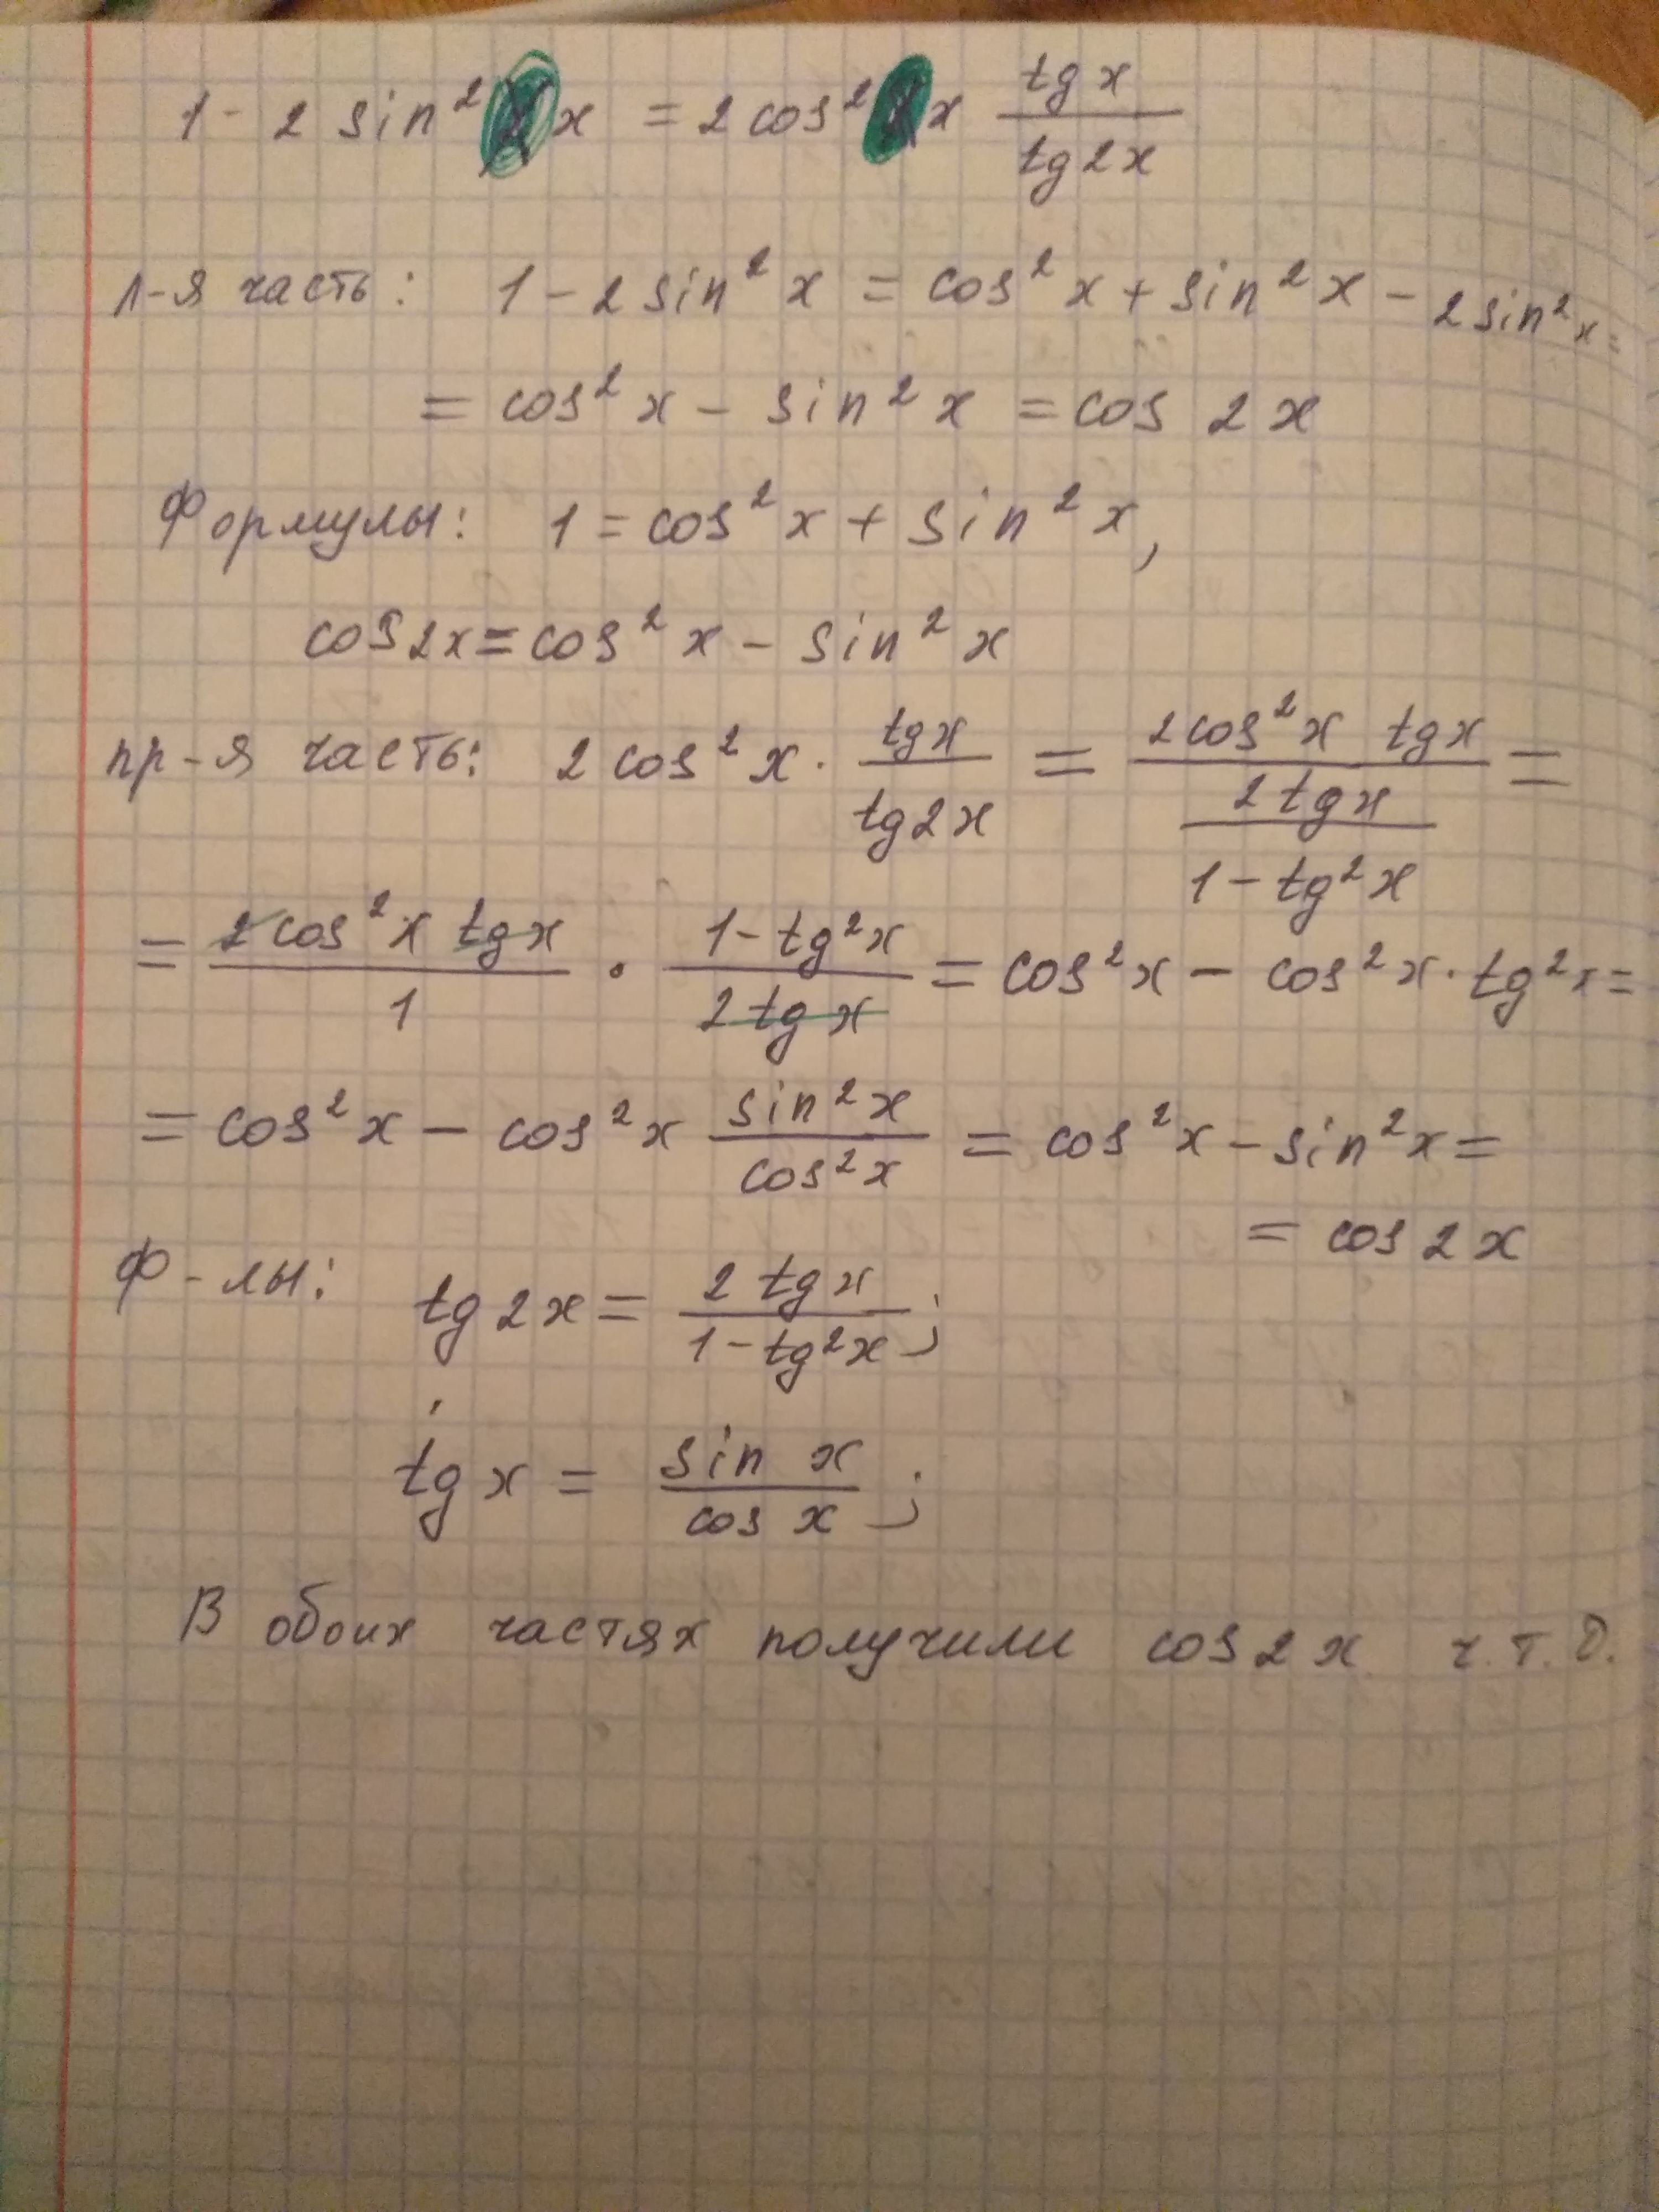 1 - 2 sin² x = 2 cos² x tg x / tg 2x
л-я часть: 1 - 2 sin² x = cos² x + sin² x - 2 sin² x =
= cos² x - sin² x = cos 2x
Формулы: 1 = cos² x + sin² x,
cos 2x = cos² x - sin² x
пр-я часть: 2 cos² x · tg x / tg 2x = 2 cos² x tg x / (2 tg x / (1 - tg² x)) =
= 2 cos² x tg x / 1 · (1 - tg² x) / 2 tg x = cos² x - cos² x · tg² x =
= cos² x - cos² x sin² x / cos² x = cos² x - sin² x =
= cos 2x
Ф-лы: tg 2x = 2 tg x / (1 - tg² x);
tg x = sin x / cos x;
В обоих частях получили cos 2x ч.т.д.